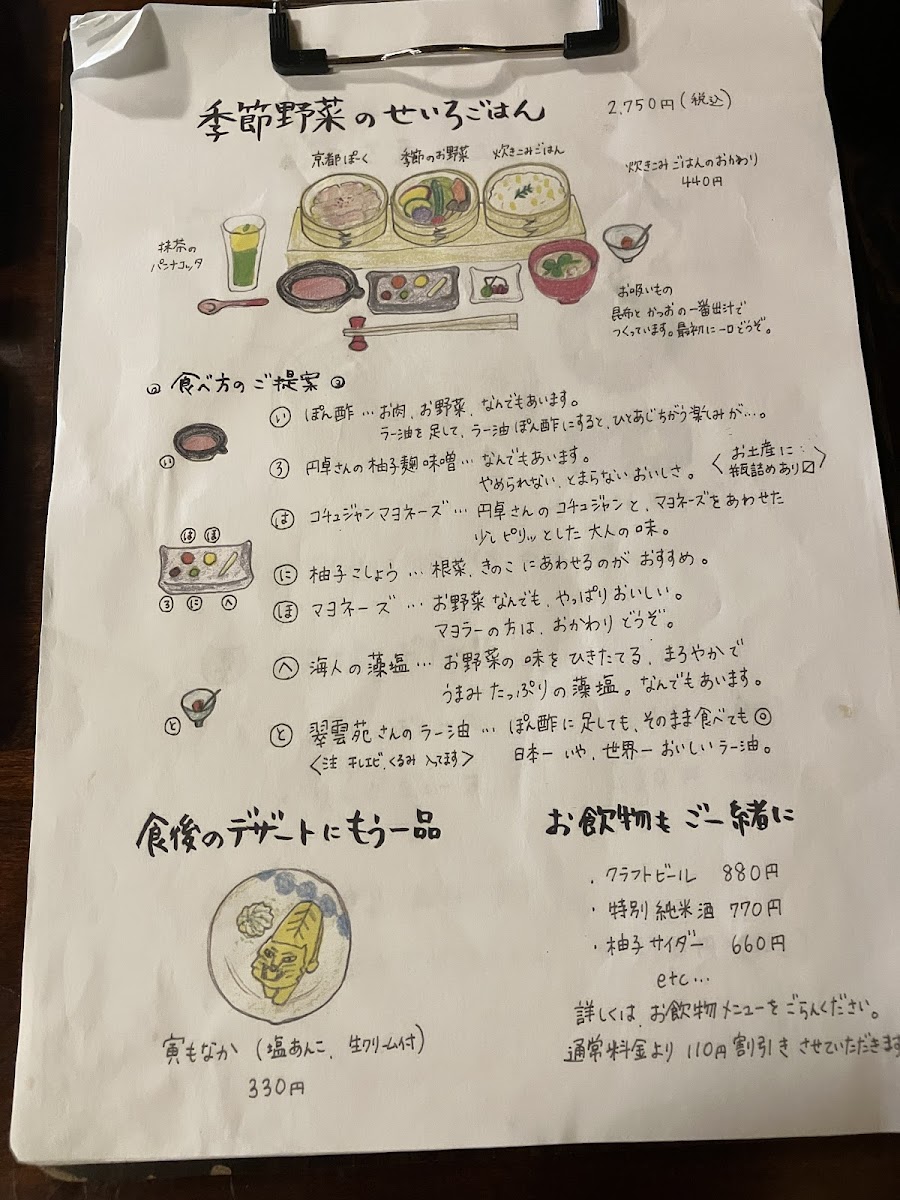 季節野菜のせいろごはん
2,750円(税込)
京都ぽーく
季節のお野菜
炊きこみごはん
炊きこみごはんのおかわり
440円
抹茶の
パンナコッタ
お吸いもの
昆布とかつおの一番出汁で
つくっています。最初に一口どうぞ。
食べ方のご提案
い ぽん酢…お肉、お野菜、なんでもあいます。
ラー油を足して、ラー油ぽん酢にすると、ひとあじちがう楽しみが…。
い
ろ 円卓さんの柚子麹味噌…なんでもあいます。
やめられない、とまらないおいしさ。
〈お土産に:
瓶詰めあり〼〉
は コチュジャンマヨネーズ…円卓さんのコチュジャンと、マヨネーズをあわせた
少しピリッとした大人の味。
は ほ
ろ に へ
に 柚子こしょう…根菜、きのこにあわせるのがおすすめ。
ほ マヨネーズ…お野菜なんでも、やっぱりおいしい。
マヨラーの方は、おかわりどうぞ。
へ 海人の藻塩…お野菜の味をひきたてる、まろやかで
うまみたっぷりの藻塩。なんでもあいます。
と
と 翠雲苑さんのラー油…ぽん酢に足しても、そのまま食べても◎
〈注 干しエビ、くるみ入ってます〉
日本一いや、世界一おいしいラー油。
食後のデザートにもう一品
寅もなか(塩あんこ、生クリーム付)
330円
お飲物もご一緒に
・クラフトビール 880円
・特別純米酒 770円
・柚子サイダー 660円
etc…
詳しくは、お飲物メニューをごらんください。
通常料金より110円割引きさせていただきます